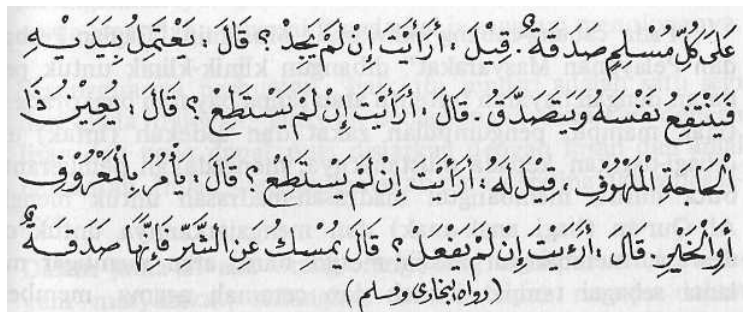 عَلَى كُلِّ مُسْلِمٍ صَدَقَةٌ. قِيْلَ : أَرَأَيْتَ إِنْ لَمْ يَجِدْ ؟ قَالَ : يَعْتَمِلُ بِيَدَيْهِ
فَيَنْتَفِعُ نَفْسَهُ وَيَتَصَدَّقُ. قَالَ : أَرَأَيْتَ إِنْ لَمْ يَسْتَطِعْ ؟ قَالَ : يُعِيْنُ ذَا
الْحَاجَةِ الْمَلْهُوْفَ ، قِيْلَ لَهُ : أَرَأَيْتَ إِنْ لَمْ يَسْتَطِعْ ؟ قَالَ : يَأْمُرُ بِالْمَعْرُوْفِ
أَوِالْخَيْرِ. قَالَ . أَرَئَيْتَ إِنْ لَمْ يَفْعَلْ ؟ قَالَ يُمْسِكُ عَنِ الشَّرِّ فَإِنَّهَا صَدَقَةٌ
(رواه البخاري ومسلم)